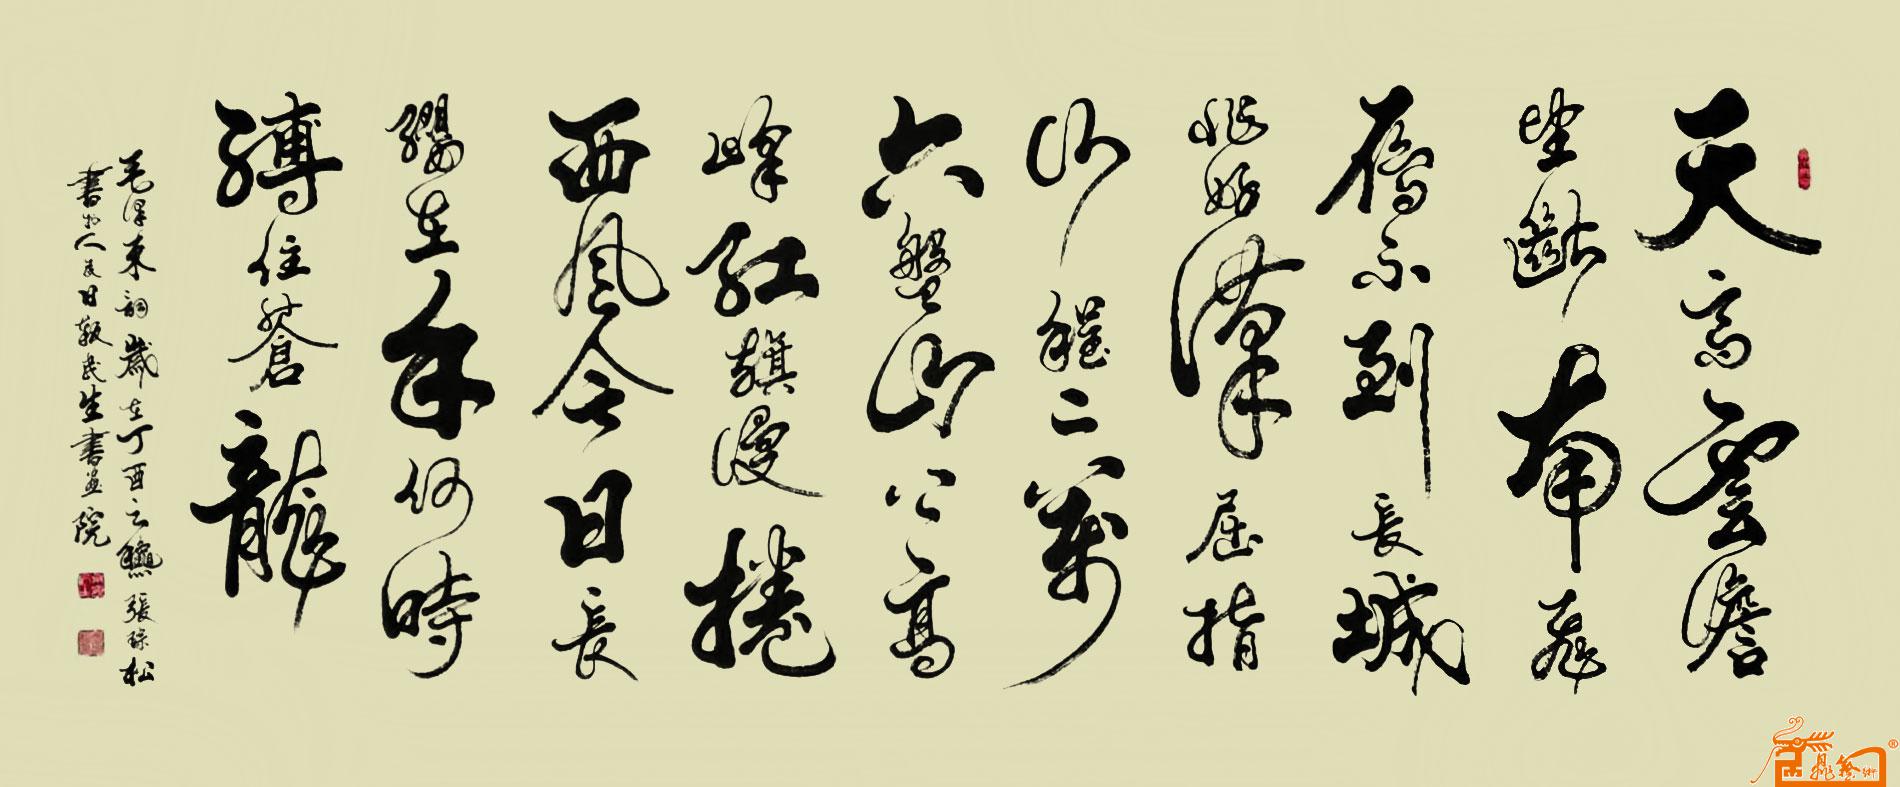 天高雲澹
望斷南飛
雁不到長城
非好漢屈指
行程二萬
六盤山上高
峰紅旗漫捲
西風今日長
纓在手何時
縛住蒼龍
毛澤東詞歲在丁酉之龝張琮松
書於人民日報民生書畫院